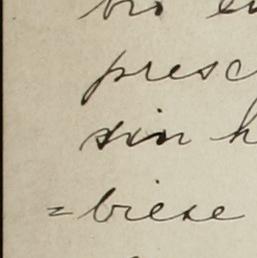 presc
sin h
=biese